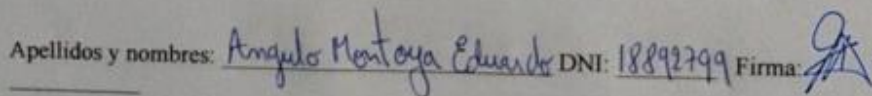 Apellidos y nombres: Angulo Montoya Eduardo DNI: 18892799 Firma: